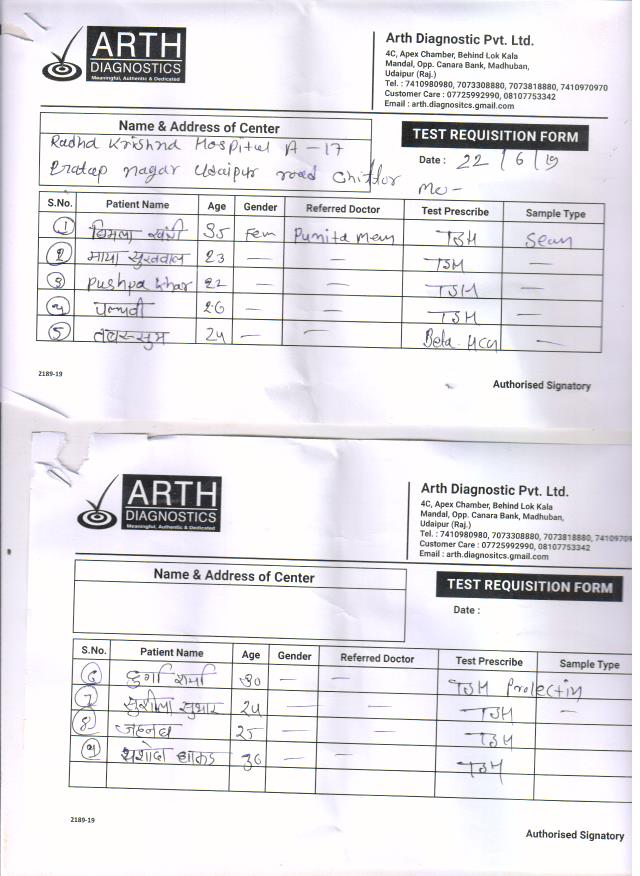 ARTH
DIAGNOSTICS
Meaningful, Authentic & Dedicated
Arth Diagnostic Pvt. Ltd.
4C, Apex Chamber, Behind Lok Kala
Mandal, Opp. Canara Bank, Madhuban,
Udaipur (Raj.)
Tel. : 7410980980, 7073308880, 7073818880, 7410970970
Customer Care : 07725992990, 08107753342
Email : arth.diagnositcs.gmail.com
Name & Address of Center
Radha Krishna Hospital A-17
Pratap nagar Udaipur road Chittor
TEST REQUISITION FORM
Date : 22/6/19
S.No. Patient Name Age Gender Referred Doctor Test Prescribe Sample Type
1 विमला 35 Fem Punita Mem TSH
2 माया सुखवाल 23 — — TSH —
3 Pushpa 22 — — TSH —
4 26 — — TSH —
5 24 — — Beta-HCG —
2189-19
Authorised Signatory
ARTH
DIAGNOSTICS
Meaningful, Authentic & Dedicated
Arth Diagnostic Pvt. Ltd.
4C, Apex Chamber, Behind Lok Kala
Mandal, Opp. Canara Bank, Madhuban,
Udaipur (Raj.)
Tel. : 7410980980, 7073308880, 7073818880, 741097097
Customer Care : 07725992990, 08107753342
Email : arth.diagnositcs.gmail.com
Name & Address of Center
TEST REQUISITION FORM
Date :
S.No. Patient Name Age Gender Referred Doctor Test Prescribe Sample Type
6 दुर्गा शर्मा 30 — — TSH Prolectin
7 सुशीला सुथार 24 — — TSH —
8 25 — — TSH
9 यशोदा 36 — — TSH
2189-19
Authorised Signatory